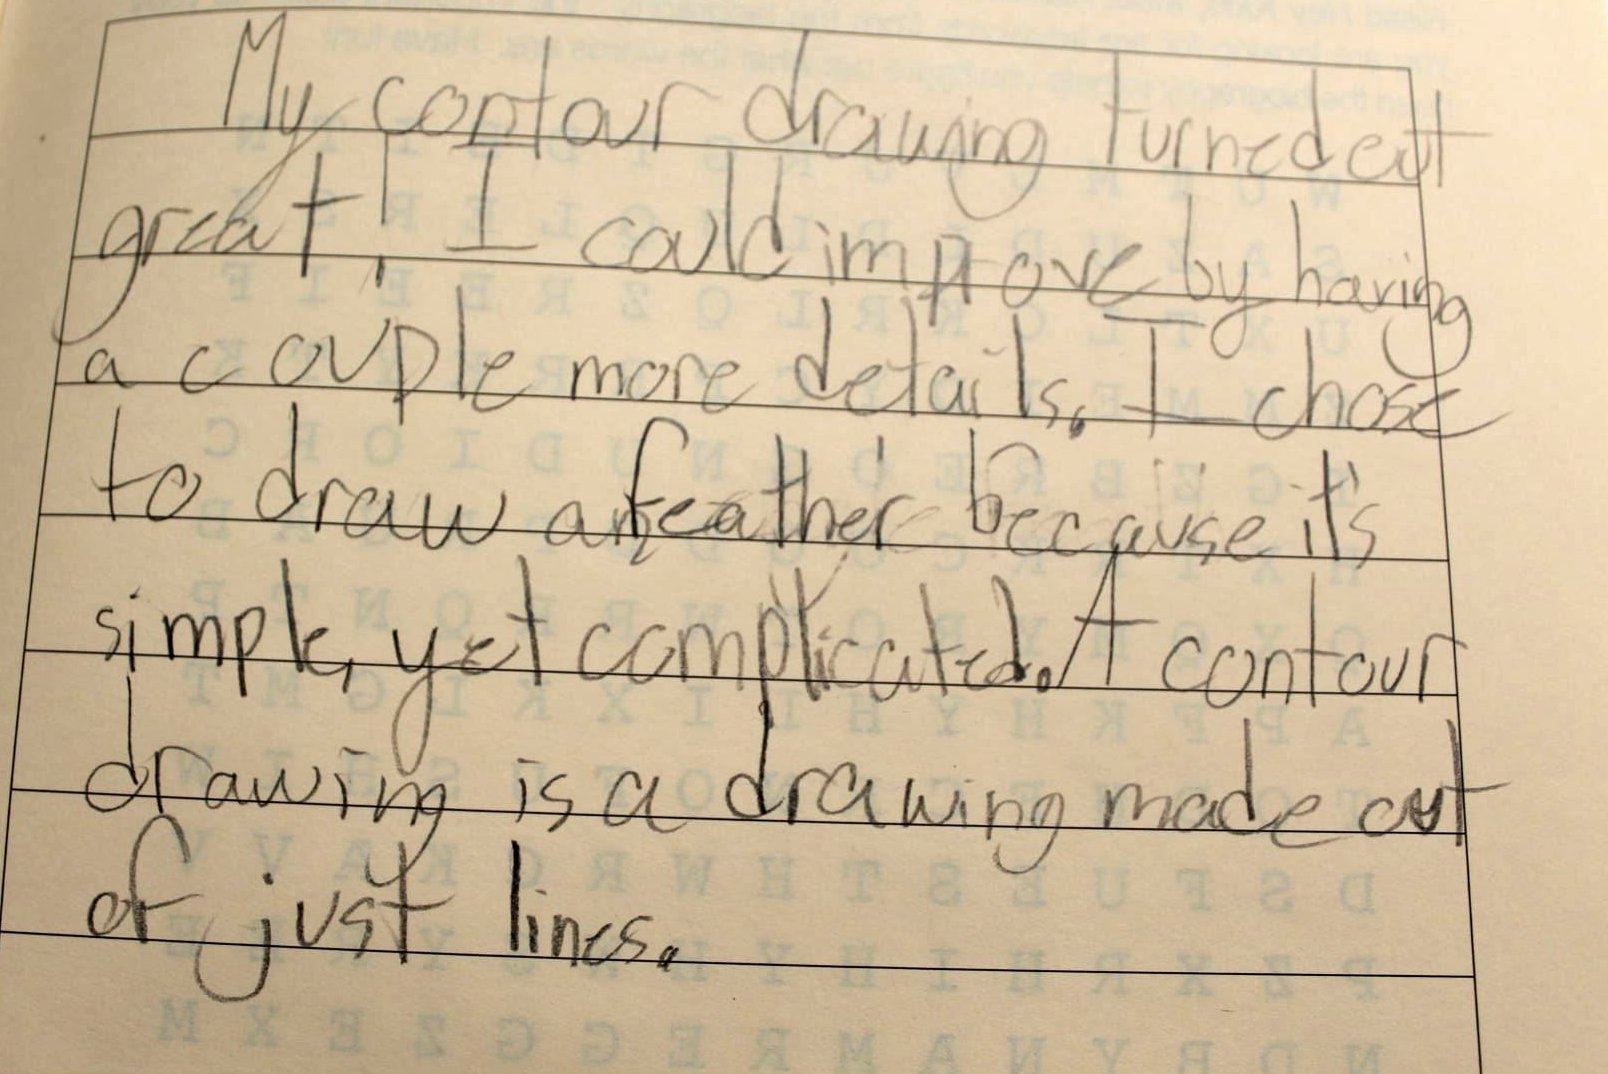 My contour drawing turned out
great! I could improve by having
a couple more details. I chose
to draw a feather because it's
simple, yet complicated. A contour
drawing is a drawing made out
of just lines.